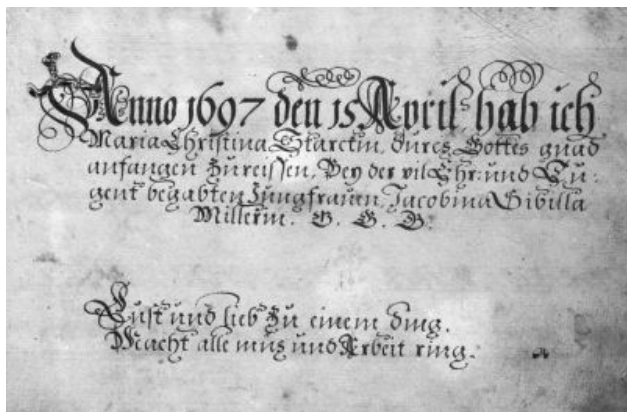 Anno 1697 den 15 April hab ich
Maria Christina Starckin, durch Gottes gnad
anfangen Zureissen, Bey der vil Ehr: und Tu:
gent begabten Jungfrauen, Jacobina Sibilla
Millerin. G. G. G.
Lust und lieb zu einem ding.
Macht alle müe und Arbeit ring.